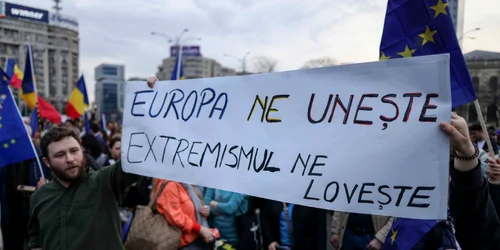 EUROPA NE UNEȘTE
EXTREMISMUL NE
LOVEȘTE